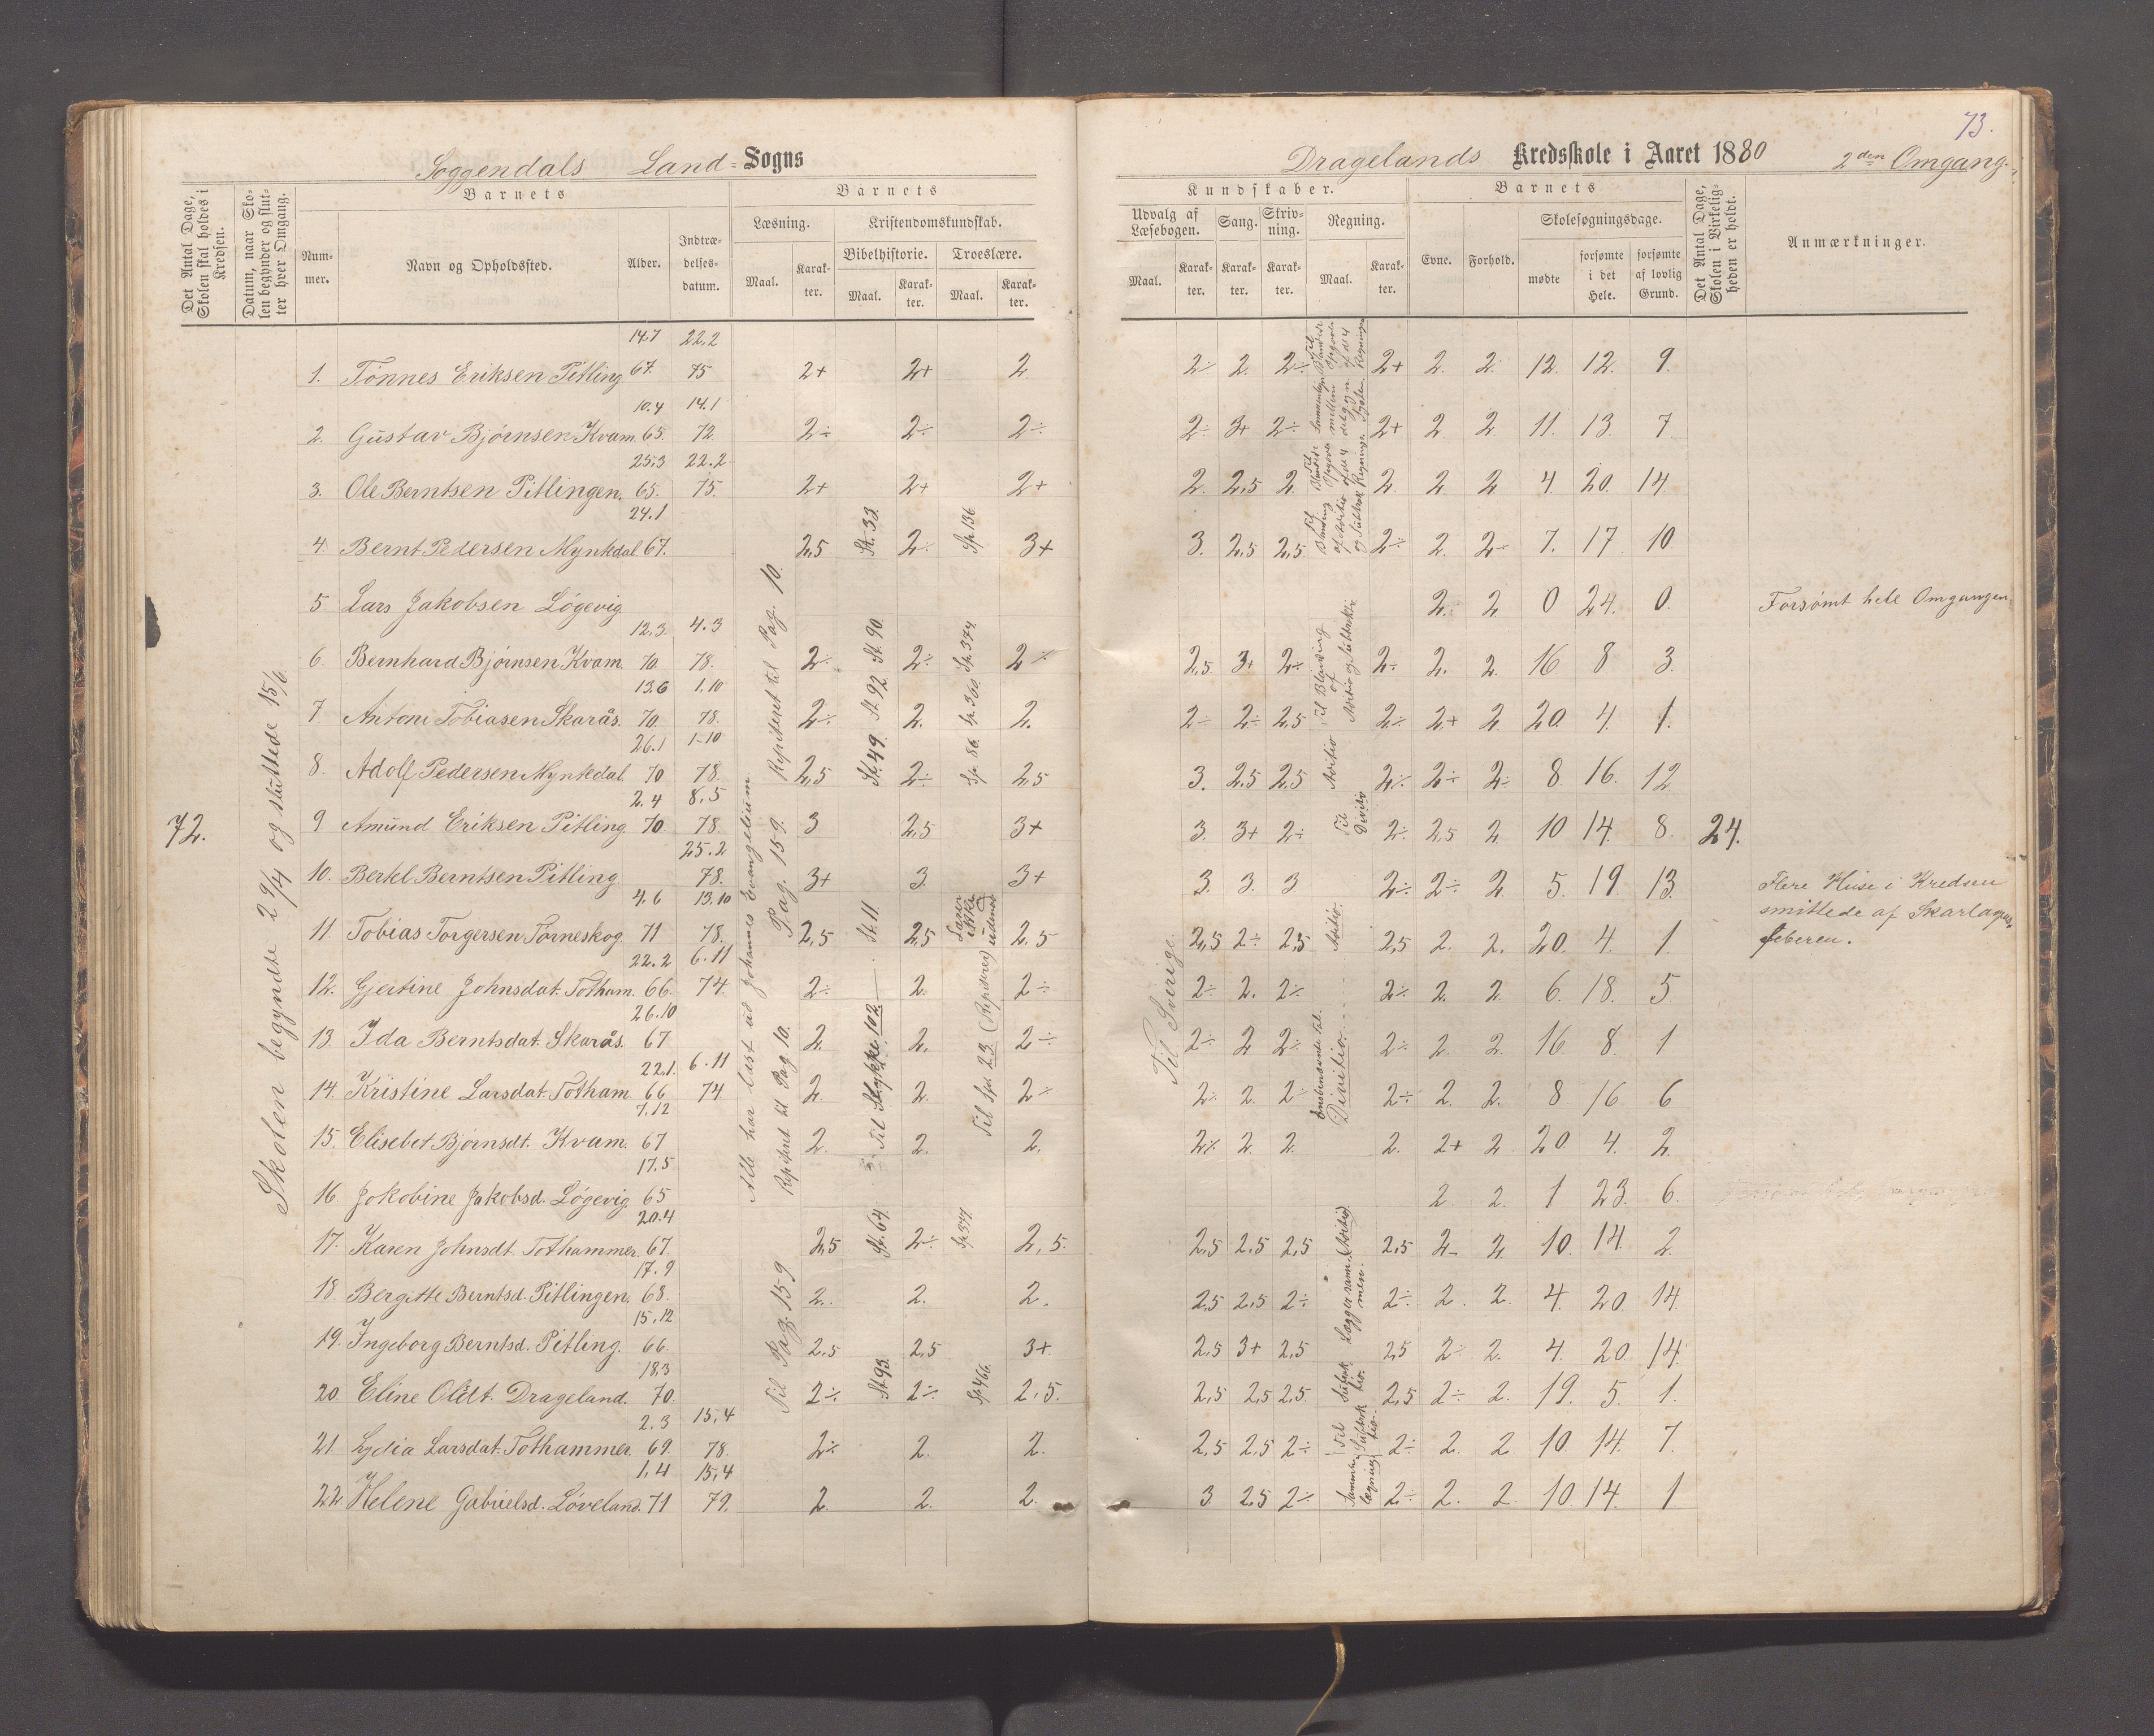 73.
Soggendals Land= Sogns
Dragelands Kredsskole i Aaret 1880 2den Omgang.
Det Antal Dage, Skolen skal holdes i Kredsen.
Datum, naar Skolen begynder og slutter hver Omgang.
Barnets
Nummer.
Navn og Opholdssted.
Alder.
Indtrædelsesdatum.
Barnets
Læsning.
Maal.
Karakter.
Kristendomskundskab.
Bibelhistorie.
Maal.
Karakter.
Troeslære.
Maal.
Karakter.
Kundskaber.
Udvalg af Læsebogen.
Maal.
Karakter.
Sang.
Karakter.
Skrivning.
Karakter.
Regning.
Maal.
Karakter.
Barnets
Evne.
Forhold.
Skolesøgningsdage.
mødte
forsømte i det Hele.
forsømte af lovlig Grund.
Det Antal Dage, Skolen i Virkeligheden er holdt.
Anmærkninger.
72.
Skolen begyndte 29/4 og sluttede 15/6.
14.7 22.2
1. Tønnes Eriksen Pitling 67. 75 2+ 2+ 2 2÷ 2. 2÷ 2+ 2. 2. 12. 12. 9.
10.4 14.1
2. Gustav Bjørnsen Kvam. 65. 72. 2÷ 2÷ 2÷ 2÷ 3+ 2÷ 2+ 2 2 11. 13. 7
25.3 22.2
3. Ole Berntsen Pitlingen. 65. 75. 2+ 2+ 2+ 2. 2,5 2 2. 2 2 4 20. 14
24.1
4. Bernt Pedersen Mynkdal 67. 2,5 St. 33. 2÷ Sp. 136 3+ 3. 2,5 2,5 2÷ 2. 2÷ 7. 17. 10
5 Lars Jakobsen Løgevig 2. 2 0 24. 0. Forsømt hele Omgangen.
12.3. 4.3
6. Bernhard Bjørnsen Kvam. 70 78. 2÷ St. 90. 2÷ Sp. 374. 2÷ 2,5 3+ 2÷ 2÷ 2. 2. 16 8 3.
13.6 1.10
7 Antoni Tobiasen Skarås. 70. 78. 2÷ St. 92. 2. Sp. 360. 2. 2÷ 2÷ 2,5 2÷ 2+ 2 20. 4. 1.
26.1 1-10
8. Adolf Pedersen Mynkdal 70 78. 2,5 St. 49. 2÷ Sp. 86. 2,5 3. 2,5 2,5 Aditio 2÷ 2÷ 2÷ 8 16. 12
2.4 8.5
9 Amund Eriksen Pitling. 70. 78. 3 2,5 3+ 3. 3+ 2÷ Til Divitio 2÷ 2,5 2. 10 14. 8. 24.
25.2
10. Berkl Berntsen Pitling 78. 3+ 3. 3+ 3. 3. 3 2÷ 2÷ 2. 5. 19. 13.
4.6 13.10
11. Tobias Torgersen Tørneskog. 71 78. 2,5 St. 11. 2,5 Læser ikke udenad 2.5 2,5 2÷ 2,5 Aditio. 2,5 2. 2. 20. 4. 1
22.2 6.11
12. Gjertine Johnsdat. Totham. 66. 74. 2÷ 2. 2÷ 2÷ 2. 2÷ 2÷ 2. 2. 6. 18. 5.
26.10
13. Ida Berntsdat. Skarås. 67 2. 2. 2÷ 2÷ 2 2÷ 2÷ 2. 2. 16 8. 1
22.1. 6.11
14. Kristine Larsdat. Totham 66 74 2 2. 2÷ 2÷ 2. 2÷ 2÷ 2. 2. 8 16. 6
7.12
15. Elisebet Bjørnsdt. Kvam. 67 2. 2. 2. 2÷ 2. 2. 2. 2+ 2 20 4. 2.
17.5
16. Jokobine Jakobsd. Løgevig. 65 2 2. 1 23. 6.
20.4
17. Karen Johnsdt. Tothammer. 67. 2,5 St. 64. 2÷ Sp. 377. 2,5. 2,5 2,5 2,5 2,5 2- 2 10. 14. 2.
17.9
18. Bergitte Berntsd. Pitlingen. 68. 2. 2. 2. 2,5 2,5 2÷ 2÷ 2. 2. 4. 20. 14.
15.12
19. Ingeborg Berntsd. Pitling. 66. 2,5 2,5 3+ 2,5 3+ 2,5 2,5 2÷ 2. 4. 20. 14.
18.3
20. Eline Oldt. Drageland. 70. 2÷ St. 93. 2÷ Sp. 466. 2,5. 2,5 2,5 2,5. 2,5 2÷ 2. 19. 5. 1.
2.3 15.4
21. Lydia Larsdat. Tothammer. 69. 78. 2÷ 2. 2. 2,5 2,5 2÷ 2÷ 2. 2 10. 14. 7.
1.4 15.4
22. Helene Gabrielsd. Løveland. 71 79. 2. 2. 2. 3 2,5 2÷ 2÷ 2. 2. 10. 14. 1
Alle har læst ud Johannes Evangelium
Repiteret til Pag. 10.
Pag. 159.
Repiteret til Pag 10.
Til Pag. 159
Til Stykke 102.
Til Sp. 23 (Repiteret)
Til Sverige.
Til Blanding af Aditio og Subtraktio.
Divitio.
Flere Huse i Kredsen
smittede af Skarlagens-
feberen.